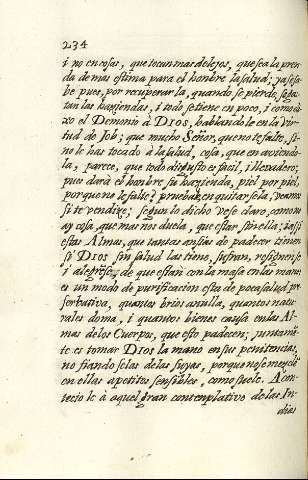 234
i no en cosas, que tocan mas de lejos, que sea la pren
da de mas estima para el hombre la salud; ya se sa
be pues, por recuperarla, quando se pierde, se gas
tan las haziendas, i todo se tiene en poco, i como di
xo el Demonio à DIOS, hablandole en la Vir
tud de Job; que mucho Señor, que no te falte, si
no le has tocado à la salud, cosa, que en aviendo
la, parece, que todo disgusto es facil, i llevadero;
pues darà el hombre su hazienda, piel por piel,
porque no le falte? prueba en quitarsela, veamos
si te vendize; segun lo dicho vese claro, como no
ay cosa, que mas nos duela, que estar sin ella; i assi
estas Almas, que tantas ansias de padecer tienen
si DIOS sin salud las tiene, sufran, resignense
i alegrese, de que estàn con la massa en las manos
es un modo de purificacion esta de poca salud pre
servativa, quantos brios aniulla, quantos natu
rales doma, i quantos bienes causa en las Al
mas de los Cuerpos, que esto padecen; juntamē
te es tomar DIOS la mano en sus penitencias,
no fiandoselas de las suyas, porque no se mezclē
en ellas apetitos sensibles, como suele. Acon
tecio le à aquel gran contemplativo de las In
dias